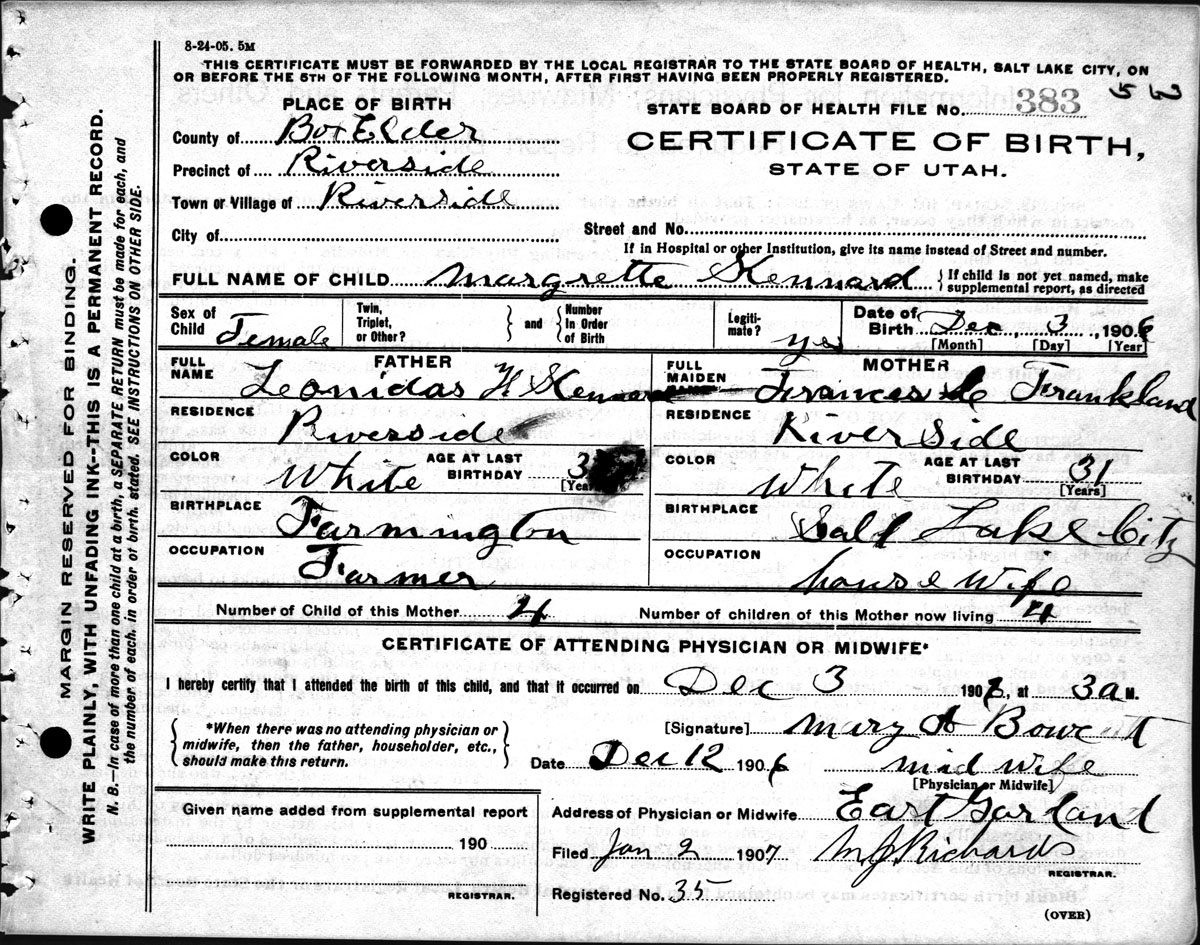 8-24-05. 5M
THIS CERTIFICATE MUST BE FORWARDED BY THE LOCAL REGISTRAR TO THE STATE BOARD OF HEALTH, SALT LAKE CITY, ON
OR BEFORE THE 5TH OF THE FOLLOWING MONTH, AFTER FIRST HAVING BEEN PROPERLY REGISTERED.
PLACE OF BIRTH
STATE BOARD OF HEALTH FILE NO. 383
County of Box Elder
CERTIFICATE OF BIRTH,
Precinct of Riverside
STATE OF UTAH.
Town or Village of Riverside
City of
Street and No.
If in Hospital or other Institution, give its name instead of Street and number.
FULL NAME OF CHILD Margrette Kennard {If child is not yet named, make
supplemental report, as directed
Sex of Child Female
Twin, Triplet, or Other? } and { Number In Order of Birth
Legiti-mate? yes
Date of Birth Dec 3 1906
[Month] [Day] [Year]
FATHER
FULL NAME Leonidas H Kennard
MOTHER
FULL MAIDEN NAME Frances Frankland
RESIDENCE Riverside
RESIDENCE River Side
COLOR White AGE AT LAST BIRTHDAY 3
[Years]
COLOR White AGE AT LAST BIRTHDAY 31
[Years]
BIRTHPLACE Farmington
BIRTHPLACE Salt Lake City
OCCUPATION Farmer
OCCUPATION house wife
Number of Child of this Mother 4 Number of children of this Mother now living 4
CERTIFICATE OF ATTENDING PHYSICIAN OR MIDWIFE*
I hereby certify that I attended the birth of this child, and that it occurred on Dec 3 1906, at 3 a M.
{ *When there was no attending physician or
midwife, then the father, householder, etc.,
should make this return. }
[Signature] Mary A Bowcutt
Date Dec 12 1906 mid wife
[Physician or Midwife]
Given name added from supplemental report
190
REGISTRAR.
Address of Physician or Midwife East Garland
Filed Jan 2 1907 M J Richards
REGISTRAR.
Registered No. 35
(OVER)
MARGIN RESERVED FOR BINDING.
WRITE PLAINLY, WITH UNFADING INK--THIS IS A PERMANENT RECORD.
N. B.—In case of more than one child at a birth, a SEPARATE RETURN must be made for each, and
the number of each, in order of birth, stated. SEE INSTRUCTIONS ON OTHER SIDE.